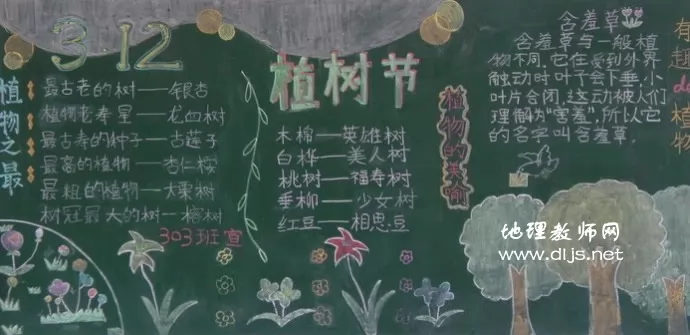 3.12
植物之最
最古老的树——银杏
植物老寿星——龙血树
最古老的种子——古莲子
最高的植物——杏仁桉
最粗的植物——大栗树
树冠最大的树——榕树
303班宣
植树节
植物的美喻
木棉——英雄树
白桦——美人树
桃树——福寿树
垂柳——少女树
红豆——相思豆
含羞草
含羞草与一般植
物不同,它在受到外界
触动时叶子会下垂,小
叶片合闭,这动被人们
理解为“害羞”,所以它
的名字叫含羞草.
有趣de植物
地理教师网
www.dljs.net